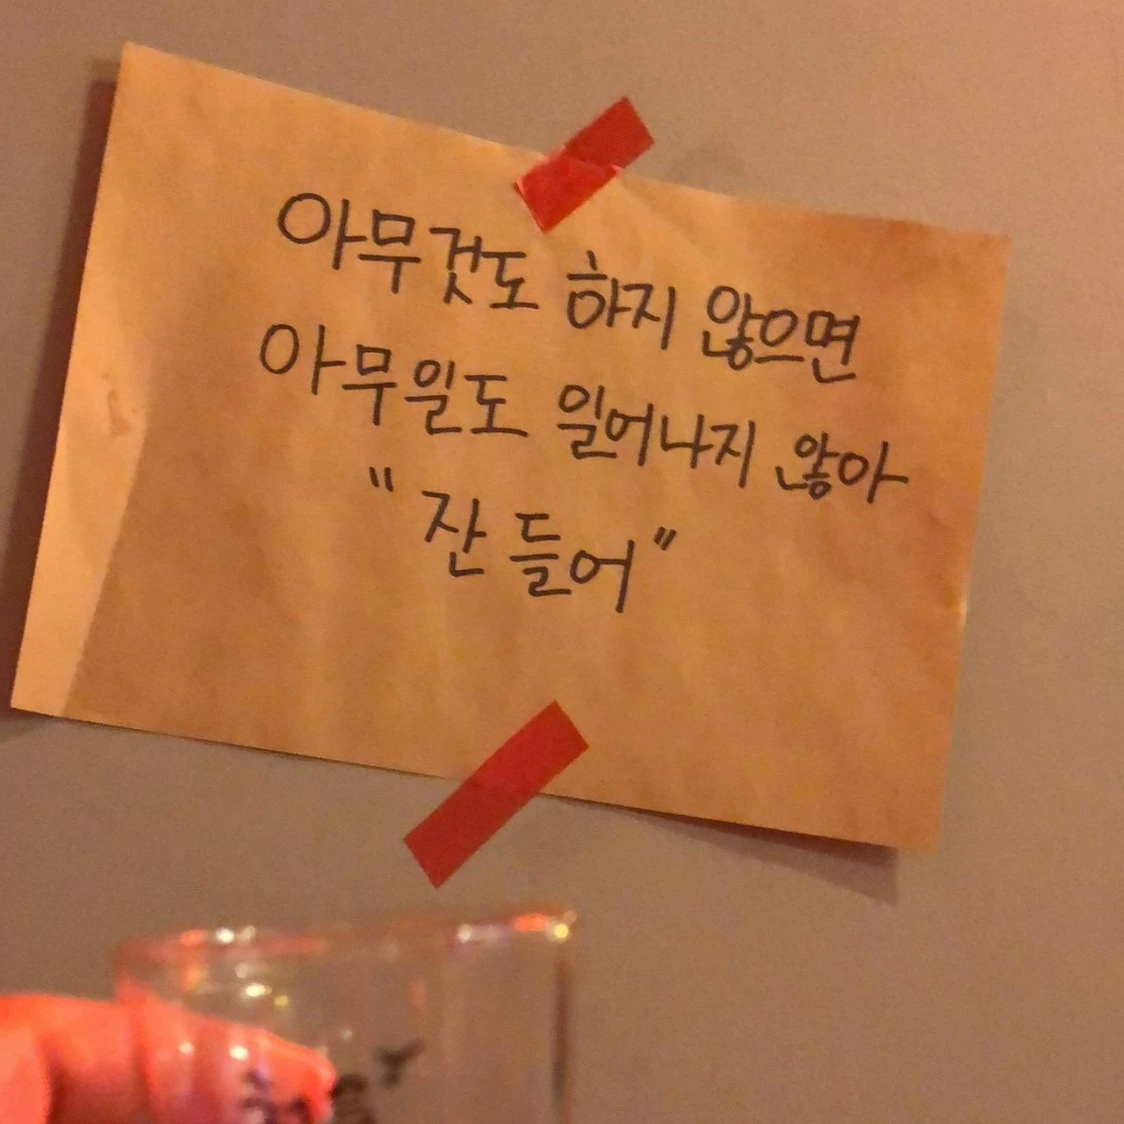 아무것도 하지 않으면
아무일도 일어나지 않아
"잔 들어"